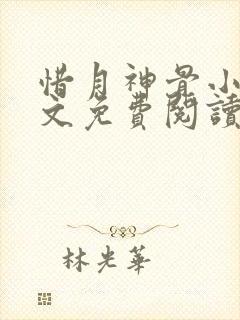 惜月神骨小
文免費閱讀
林光華